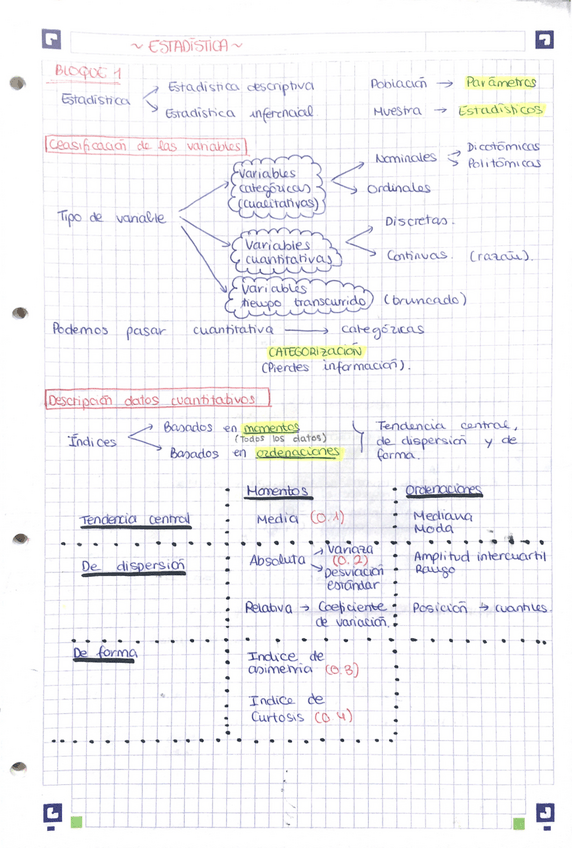 ~ ESTADÍSTICA ~
BLOQUE 1
Estadística
Estadística descriptiva
Estadística inferencial
Población → Parámetros
Muestra → Estadísticos
Clasificación de las variables
Tipo de variable
Variables
categóricas
(cualitativas)
Nominales
Dicotómicas
Politómicas
Ordinales
Variables
cuantitativas
Discretas.
Continuas. (razón).
Variables
tiempo transcurrido (truncado)
Podemos pasar cuantitativa → categóricas
CATEGORIZACIÓN
(Pierdes información).
Descripción datos cuantitativos
Índices
Basados en momentos
(Todos los datos)
Basados en ordenaciones
Tendencia central,
de dispersión y de
forma.
Momentos
Ordenaciones
Tendencia central
Media (0.1)
Mediana
Moda
De dispersión
Absoluta
Variaza
(0.2)
Desviación
estándar
Amplitud intercuartil
Rango
Relativa → Coeficiente
de variación.
Posición → cuantiles.
De forma
Indice de
asimetría (0.3)
Indice de
Curtosis (0.4)